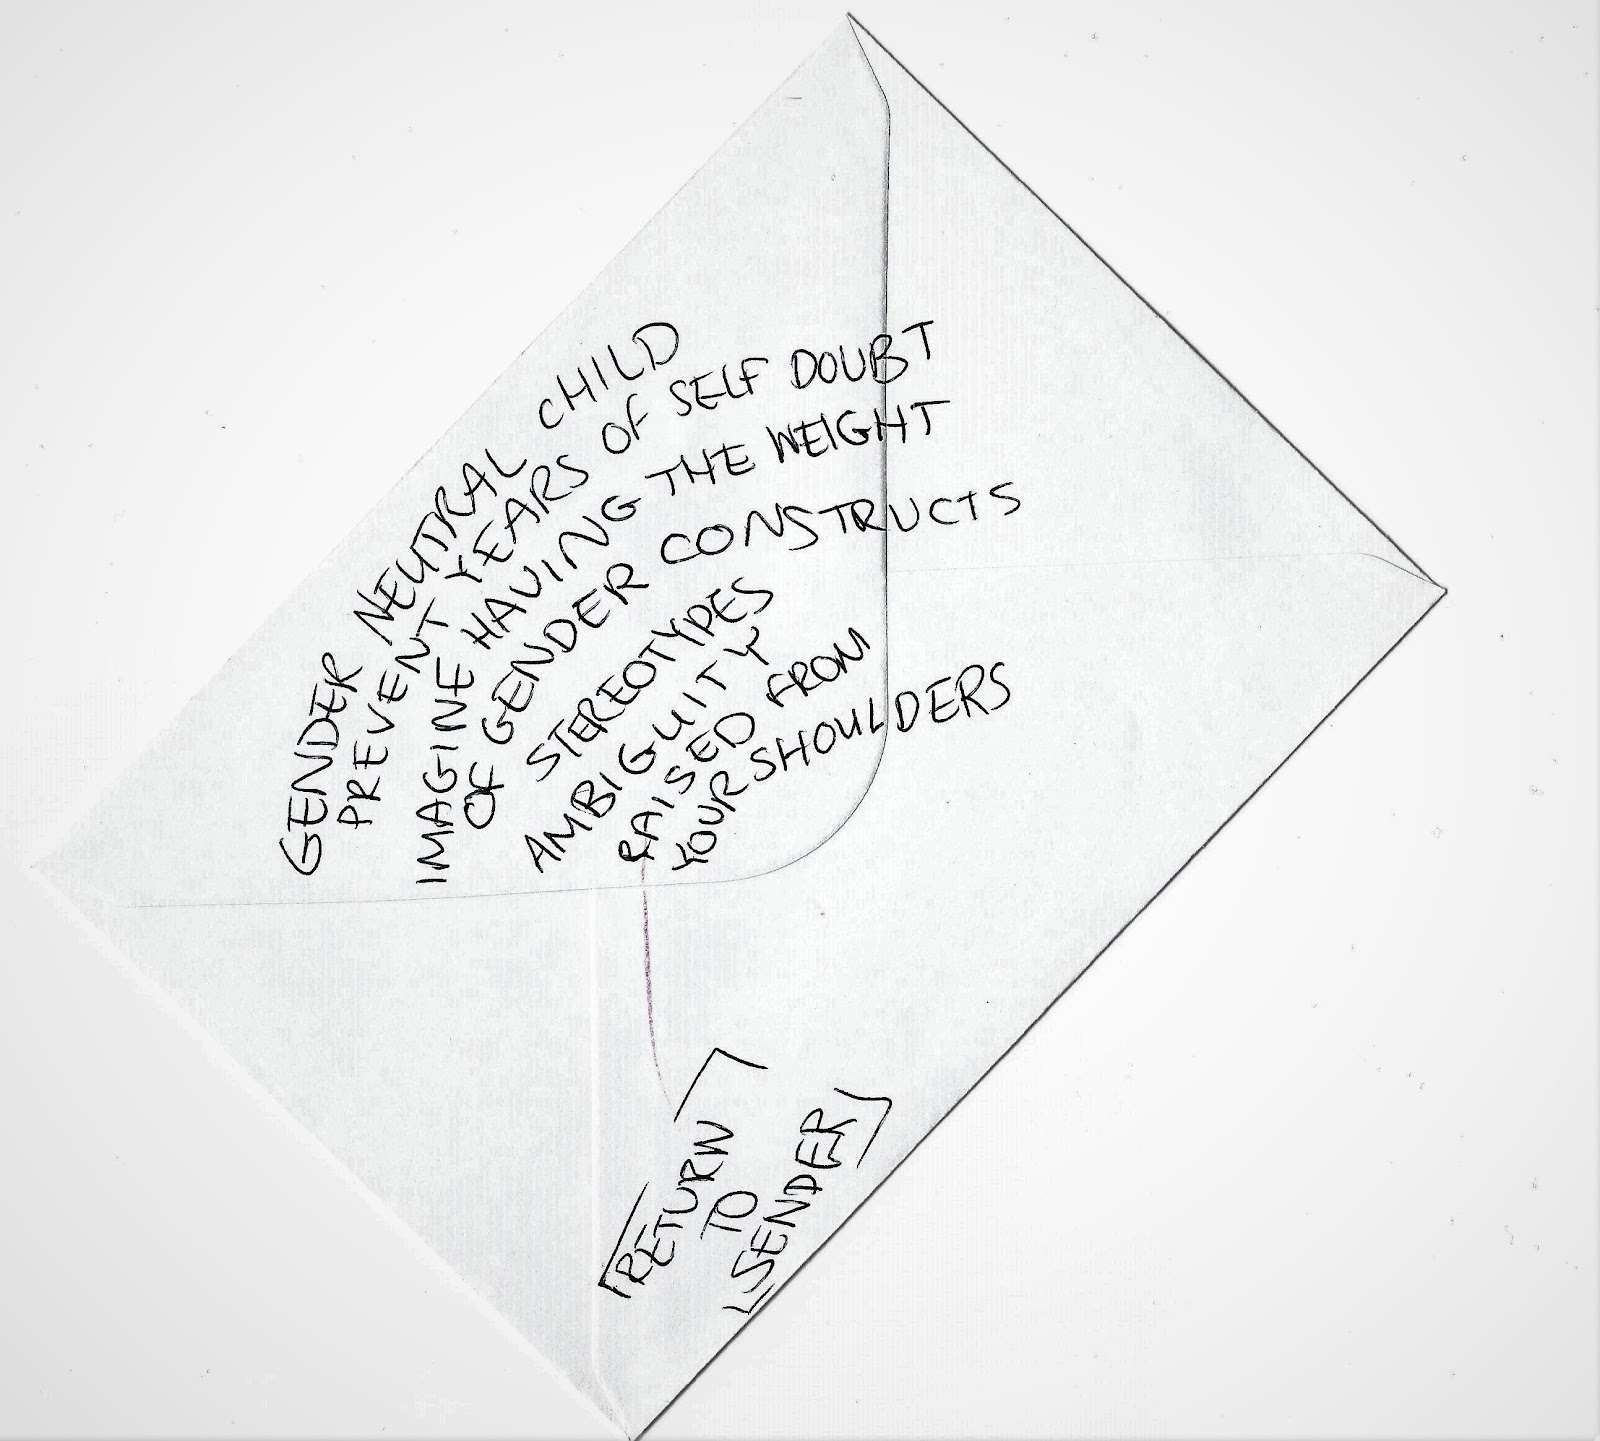 GENDER NEUTRAL CHILD
PREVENT YEARS OF SELF DOUBT
IMAGINE HAVING THE WEIGHT
OF GENDER CONSTRUCTS
STEREOTYPES
AMBIGUITY
RAISED FROM
YOUR SHOULDERS
RETURN
TO
SENDER